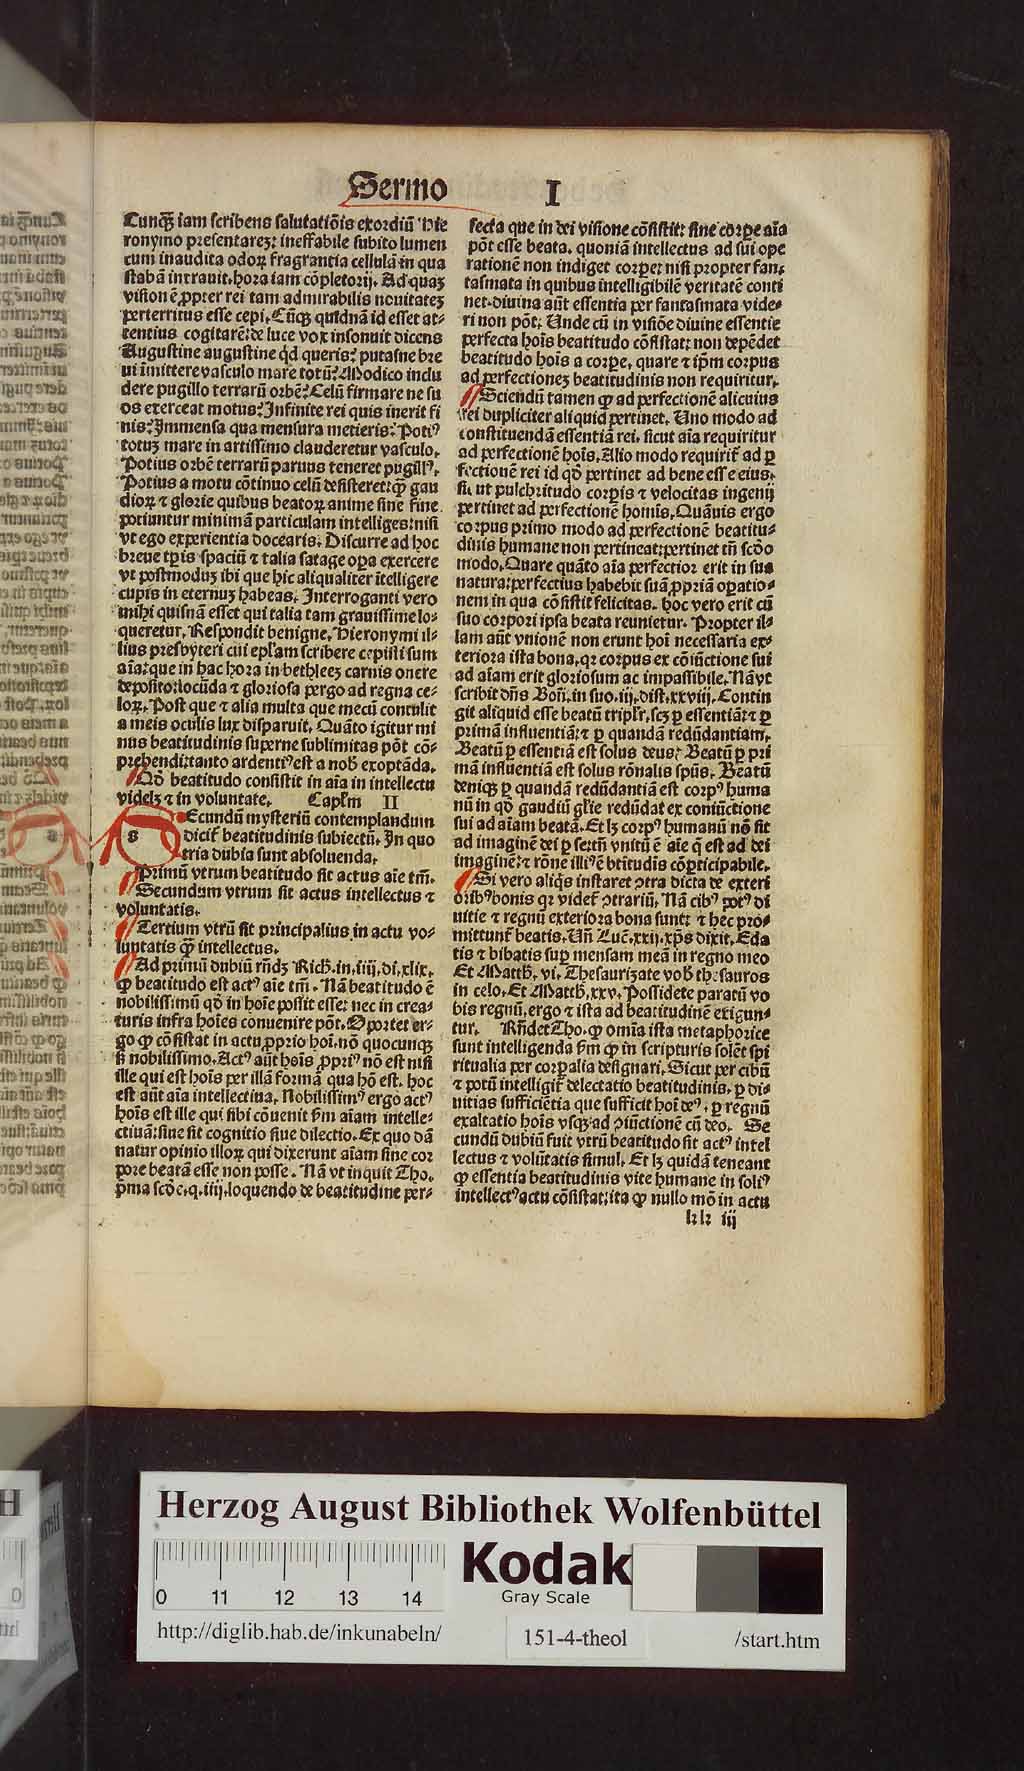 Sermo I
Cunqꝫ iam scribens salutatiōis exordiū Hie
ronymo presentareꝫ: ineffabile subito lumen
cum inaudita odoꝝ fragrantia cellulā in qua
stabā intrauit. hora iam cōpletorij. Ad quaꝫ
visionē ꝓpter rei tam admirabilis nouitateꝫ
perterritus esse cepi. Cūqꝫ quidnā id esset at⸗
tentius cogitarē: de luce vox insonuit dicens
Augustine augustine qd̄ queris? putasne bre
ui īmittere vasculo mare totū? Modico inclu
dere pugillo terrarū orbē? Celū firmare ne su
os exerceat motus? Infinite rei quis inerit fi
nis? Immensa qua mensura metieris? Potiꝰ
totuꝫ mare in artissimo clauderetur vasculo.
Potius orbē terrarū paruus teneret pugillꝰ.
Potius a motu cōtinuo celū desisteret: ꝙ̄ gau
dioꝝ ⁊ glorie quibus beatoꝝ anime sine fine
potiuntur minimā particulam intelliges: nisi
vt ego experientia docearis. Discurre ad hoc
breue tꝑis spaciū ⁊ talia satage oꝑa exercere
vt postmoduꝫ ibi que hic aliqualiter ītelligere
cupis in eternuꝫ habeas. Interroganti vero
mihi quisnā esset qui talia tam grauissime lo⸗
queretur. Respondit benigne. Hieronymi il⸗
lius presbyteri cui epl̄am scribere cepisti sum
aīa: que in hac hora in bethleeꝫ carnis onere
deposito: locūda ⁊ gloriosa pergo ad regna ce⸗
loꝝ. Post que ⁊ alia multa que mecū contulit
a meis oculis lux disparuit. Quāto igitur mi
nus beatitudinis superne sublimitas pōt cō⸗
prehendi: tanto ardentiꝰ est a nob̄ exoptāda.
Qd̄ beatitudo consistit in aīa in intellectu
videlꝫ ⁊ in voluntate. Caplm̄ II
s Ecundū mysteriū contemplandum
dicit̄ beatitudinis subiectū. In quo
tria dubia sunt absoluenda.
Primū vtrum beatitudo sit actus aīe tm̄.
Secundum vtrum sit actus intellectus ⁊
voluntatis.
Tertium vtrū sit principalius in actu vo⸗
luntatis ꝙ̄ intellectus.
Ad primū dubiū rn̄dꝫ Rich. in .iiij. di. xlix.
ꝙ beatitudo est actꝰ aīe tm̄. Nā beatitudo ē
nobilissimū qd̄ in hoīe possit esse: nec in crea⸗
turis infra hoīes conuenire pōt. Oportet er⸗
go ꝙ cōsistat in actu ꝓprio hoī. nō quocunqꝫ
sꝫ nobilissimo. Actꝰ aūt hoīs ꝓpriꝰ nō est nisi
ille qui est hoīs per illā formā qua hō est. hoc
est aūt aīa intellectiua. Nobilissimꝰ ergo actꝰ
hoīs est ille qui sibi cōuenit ẜm aīam intelle⸗
ctiuā: siue sit cognitio siue dilectio. Ex quo dā
natur opinio illoꝝ qui dixerunt aīam sine cor
pore beatā esse non posse. Nā vt inquit Tho.
pma scd̄e. q. iiij. loquendo de beatitudine per⸗
fecta que in dei visione cōsistit: sine corꝑe aīa
pōt esse beata. quoniā intellectus ad sui ope
rationē non indiget corꝑe: nisi propter fan⸗
tasmata in quibus intelligibilē veritatē conti
net. diuina aūt essentia per fantasmata vide⸗
ri non pōt. Unde cū in visiōe diuine essentie
perfecta hoīs beatitudo cōsistat: non depēdet
beatitudo hoīs a corꝑe. quare ⁊ ip̄m corpus
ad perfectioneꝫ beatitudinis non requiritur.
Sciendū tamen ꝙ ad perfectionē alicuius
rei dupliciter aliquid pertinet. Uno modo ad
constituendā essentiā rei. sicut aīa requiritur
ad perfectionē hoīs. Alio modo requirit̄ ad ꝑ
fectionē rei id qd̄ pertinet ad bene esse eius.
sic̄ ut pulchritudo corꝑis ⁊ velocitas ingenij
pertinet ad perfectionē homīs. Quāuis ergo
corpus primo modo ad perfectionē beatitu⸗
dinis humane non pertineat: pertinet tn̄ scd̄o
modo. Quare quāto aīa perfectior erit in sua
natura: perfectius habebit suā ꝓpriā oꝑatio⸗
nem in qua cōsistit felicitas. hoc vero erit cū
suo corpori ipsa beata reunietur. Propter il⸗
lam aūt vnionē non erunt hoī necessaria ex⸗
teriora ista bona. qꝛ corpus ex cōiūctione sui
ad aīam erit gloriosum ac impassibile. Nā vt
scribit dn̄s Boñ. in suo .iij. dist. xxviij. Contin
git aliquid esse beatū triplr̄. scꝫ ꝑ essentiā: ⁊ ꝑ
primā influentiā: ⁊ ꝑ quandā redūdantiam.
Beatū ꝑ essentiā est solus deus. Beatū ꝑ pri
mā influentiā est solus rōnalis spūs. Beatū
deniqꝫ ꝑ quandā redūdantiā est corpꝰ huma
nū in qd̄ gaudiū gl̄ie redūdat ex coniūctione
sui ad aīam beatā. Et lꝫ corpꝰ humanū nō sit
ad imaginē dei ꝑ se: tn̄ vnitū ē aīe q̄ est ad dei
imaginē: ⁊ rōne illiꝰ ē btītudīs cōꝑticipabile.
Si vero aliqͥs instaret ↄtra dicta de exteri
oribꝰ bonis qꝛ videt̄ ↄtrariū. Nā cibꝰ potꝰ di
uitie ⁊ regnū exteriora bona sunt: ⁊ hec pro⸗
mittunt̄ beatis. Un̄ Luc̄. xxij. xp̄s dixit. Eda
tis ⁊ bibatis suꝑ mensam meā in regno meo
Et Matth̄. vi. Thesaurizate vob̄ thesauros
in celo. Et Matth̄. xxv. Possidete paratū vo
bis regnū. ergo ⁊ ista ad beatitudinē exigun⸗
tur. Rn̄det Tho. ꝙ omīa ista metaphorice
sunt intelligenda ẜm ꝙ in scripturis solēt spi
ritualia per corꝑalia designari. Sicut per cibū
⁊ potū intelligit̄ delectatio beatitudinis. ꝑ di⸗
uitias sufficiētia que sufficit hoī deꝰ. ꝑ regnū
exaltatio hoīs vsqꝫ ad ↄiūctionē cū deo. Se
cundū dubiū fuit vtrū beatitudo sit actꝰ intel
lectus ⁊ volūtatis simul. Et lꝫ quidā teneant
ꝙ essentia beatitudinis vite humane in soliꝰ
intellectꝰ actu cōsistat: ita ꝙ nullo mō in actu
kk iij
Herzog August Bibliothek Wolfenbüttel
0 11 12 13 14
Kodak
Gray Scale
http://diglib.hab.de/inkunabeln/ 151-4-theol /start.htm